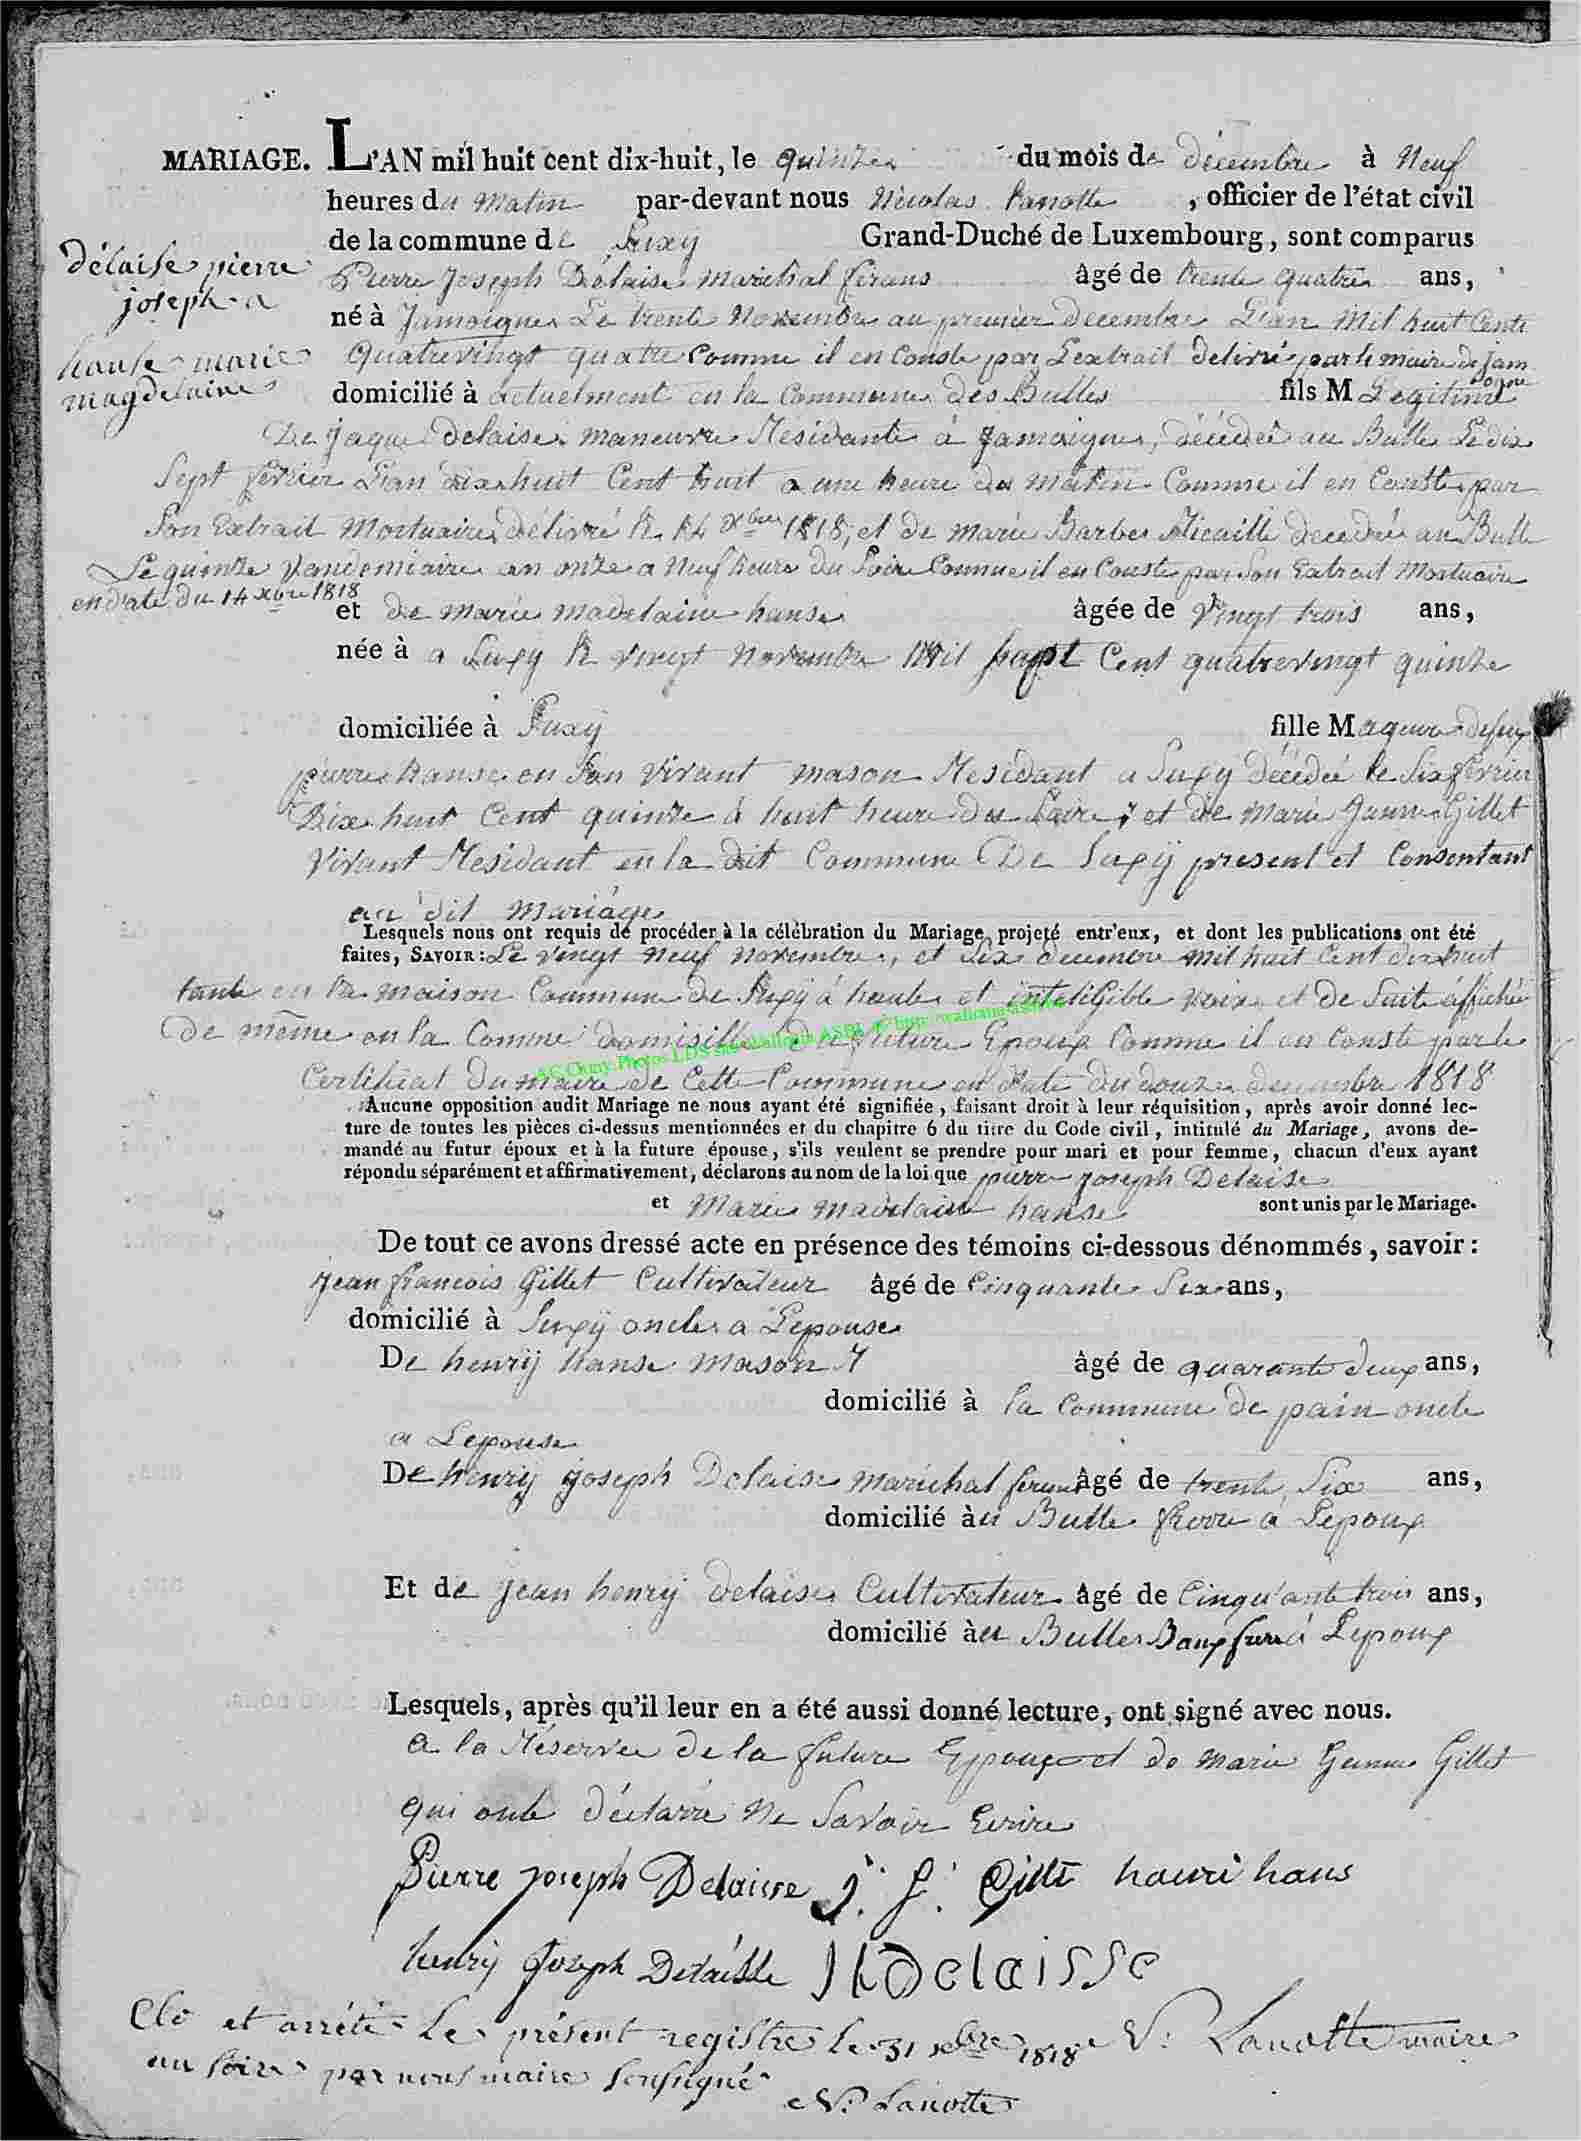 MARIAGE. L'AN mil huit cent dix-huit, le quinze du mois de décembre à Neuf
heures du matin par-devant nous Nicolas Lanotte, officier de l'état civil
de la commune de Suxy Grand-Duché de Luxembourg, sont comparus
délaise pierre
joseph a
hanse marie
magdelaine
Pierre Joseph Délaise marichal ferans âgé de trente quatre ans,
né à Jamoigne Le trente Novembre au premier decembre L'an Mil huit Cente
Quatrevingt quatre comme il en Conste par L'extrait delivré par le maire de jam
oigne
domicilié à actuelment en la Commune des Bulles fils M Legitime
De Jaque delaise maneuvre Residante à Jamoigne, décédée au Bulle Le dix
Sept fevrier L'an dix huit Cent huit a une heure du matin Comme il en Conste par
Son Extrait Mortuaire délivré le 14 xbre 1818, et de marie Barbe Micaille decedée au Bulle
Le quinze Vandemiaire an onze a Neuf heure du Soire Comme il en Conste par Son Extrait Mortuaire
en date du 14 xbre 1818
et de marie madelaine hanse âgée de Vingt trois ans,
née à a Suxy le vingt Novembre Mil sept Cent quatrevingt quinze
domiciliée à Suxy fille Mageure defeu
pierre hanse en Son Vivant mason Residant a Suxy décédée le Six fevrier
Dix huit Cent quinze à huit heure du Soire, et de Marie Janne Gillet
Vivant Residant en la dit Commune De Suxy present et Consentant
au dit mariage
Lesquels nous ont requis de procéder à la célèbration du Mariage projeté entr'eux, et dont les publications ont été
faites, SAVOIR: Le Vingt Neuf Novembre, et Six decembre mil huit Cent dix huit
tante en la maison Commune de Suxy à haute et inteligible voix et de Suite affichée
De même en la Comme domisille du future Epoux Comme il en Conste par le
A.C. Photos LDS site wallonia ASBL © http://wallonia-asbl.be
Certificat du maire de Cette Commune en date du douze decembre 1818
Aucune opposition audit Mariage ne nous ayant été signifiée, faisant droit à leur réquisition, après avoir donné lec-
ture de toutes les pièces ci-dessus mentionnées et du chapitre 6 du titre du Code civil, intitulé du Mariage, avons de-
mandé au futur époux et à la future épouse, s'ils veulent se prendre pour mari et pour femme, chacun d'eux ayant
répondu séparément et affirmativement, déclarons au nom de la loi que pierre joseph Delaise
et Marie madelaine hanse sont unis par le Mariage.
De tout ce avons dressé acte en présence des témoins ci-dessous dénommés, savoir:
Jean francois Gillet Cultivateur âgé de Cinquante Six ans,
domicilié à Suxy oncle a Lepouse
De henrij hanse mason âgé de quarante deux ans,
domicilié à la Commune de pain oncle
a Lepouse
De henrij joseph Delaise marichal ferant âgé de trente Six ans,
domicilié àu Bulle frere a Lepoux
Et de jean henrij delaise Cultivateur âgé de Cinqu'ante trois ans,
domicilié àu Bulle Baux frere a Lepoux
Lesquels, après qu'il leur en a été aussi donné lecture, ont signé avec nous.
a la Réservee de la future Eppouse et de Marie Ganne Gillet
qui onte déclarré Ne Savoir Ecrire
Pierre joseph Delaisse J. f. Gillt hanri hans
henrij Joseph Delaisse J H Delaisse
Clo et arrétée Le présent registre le 31 xbre 1818 N. Lanotte maire
au soire par nous maire Soussigné
N. Lanotte